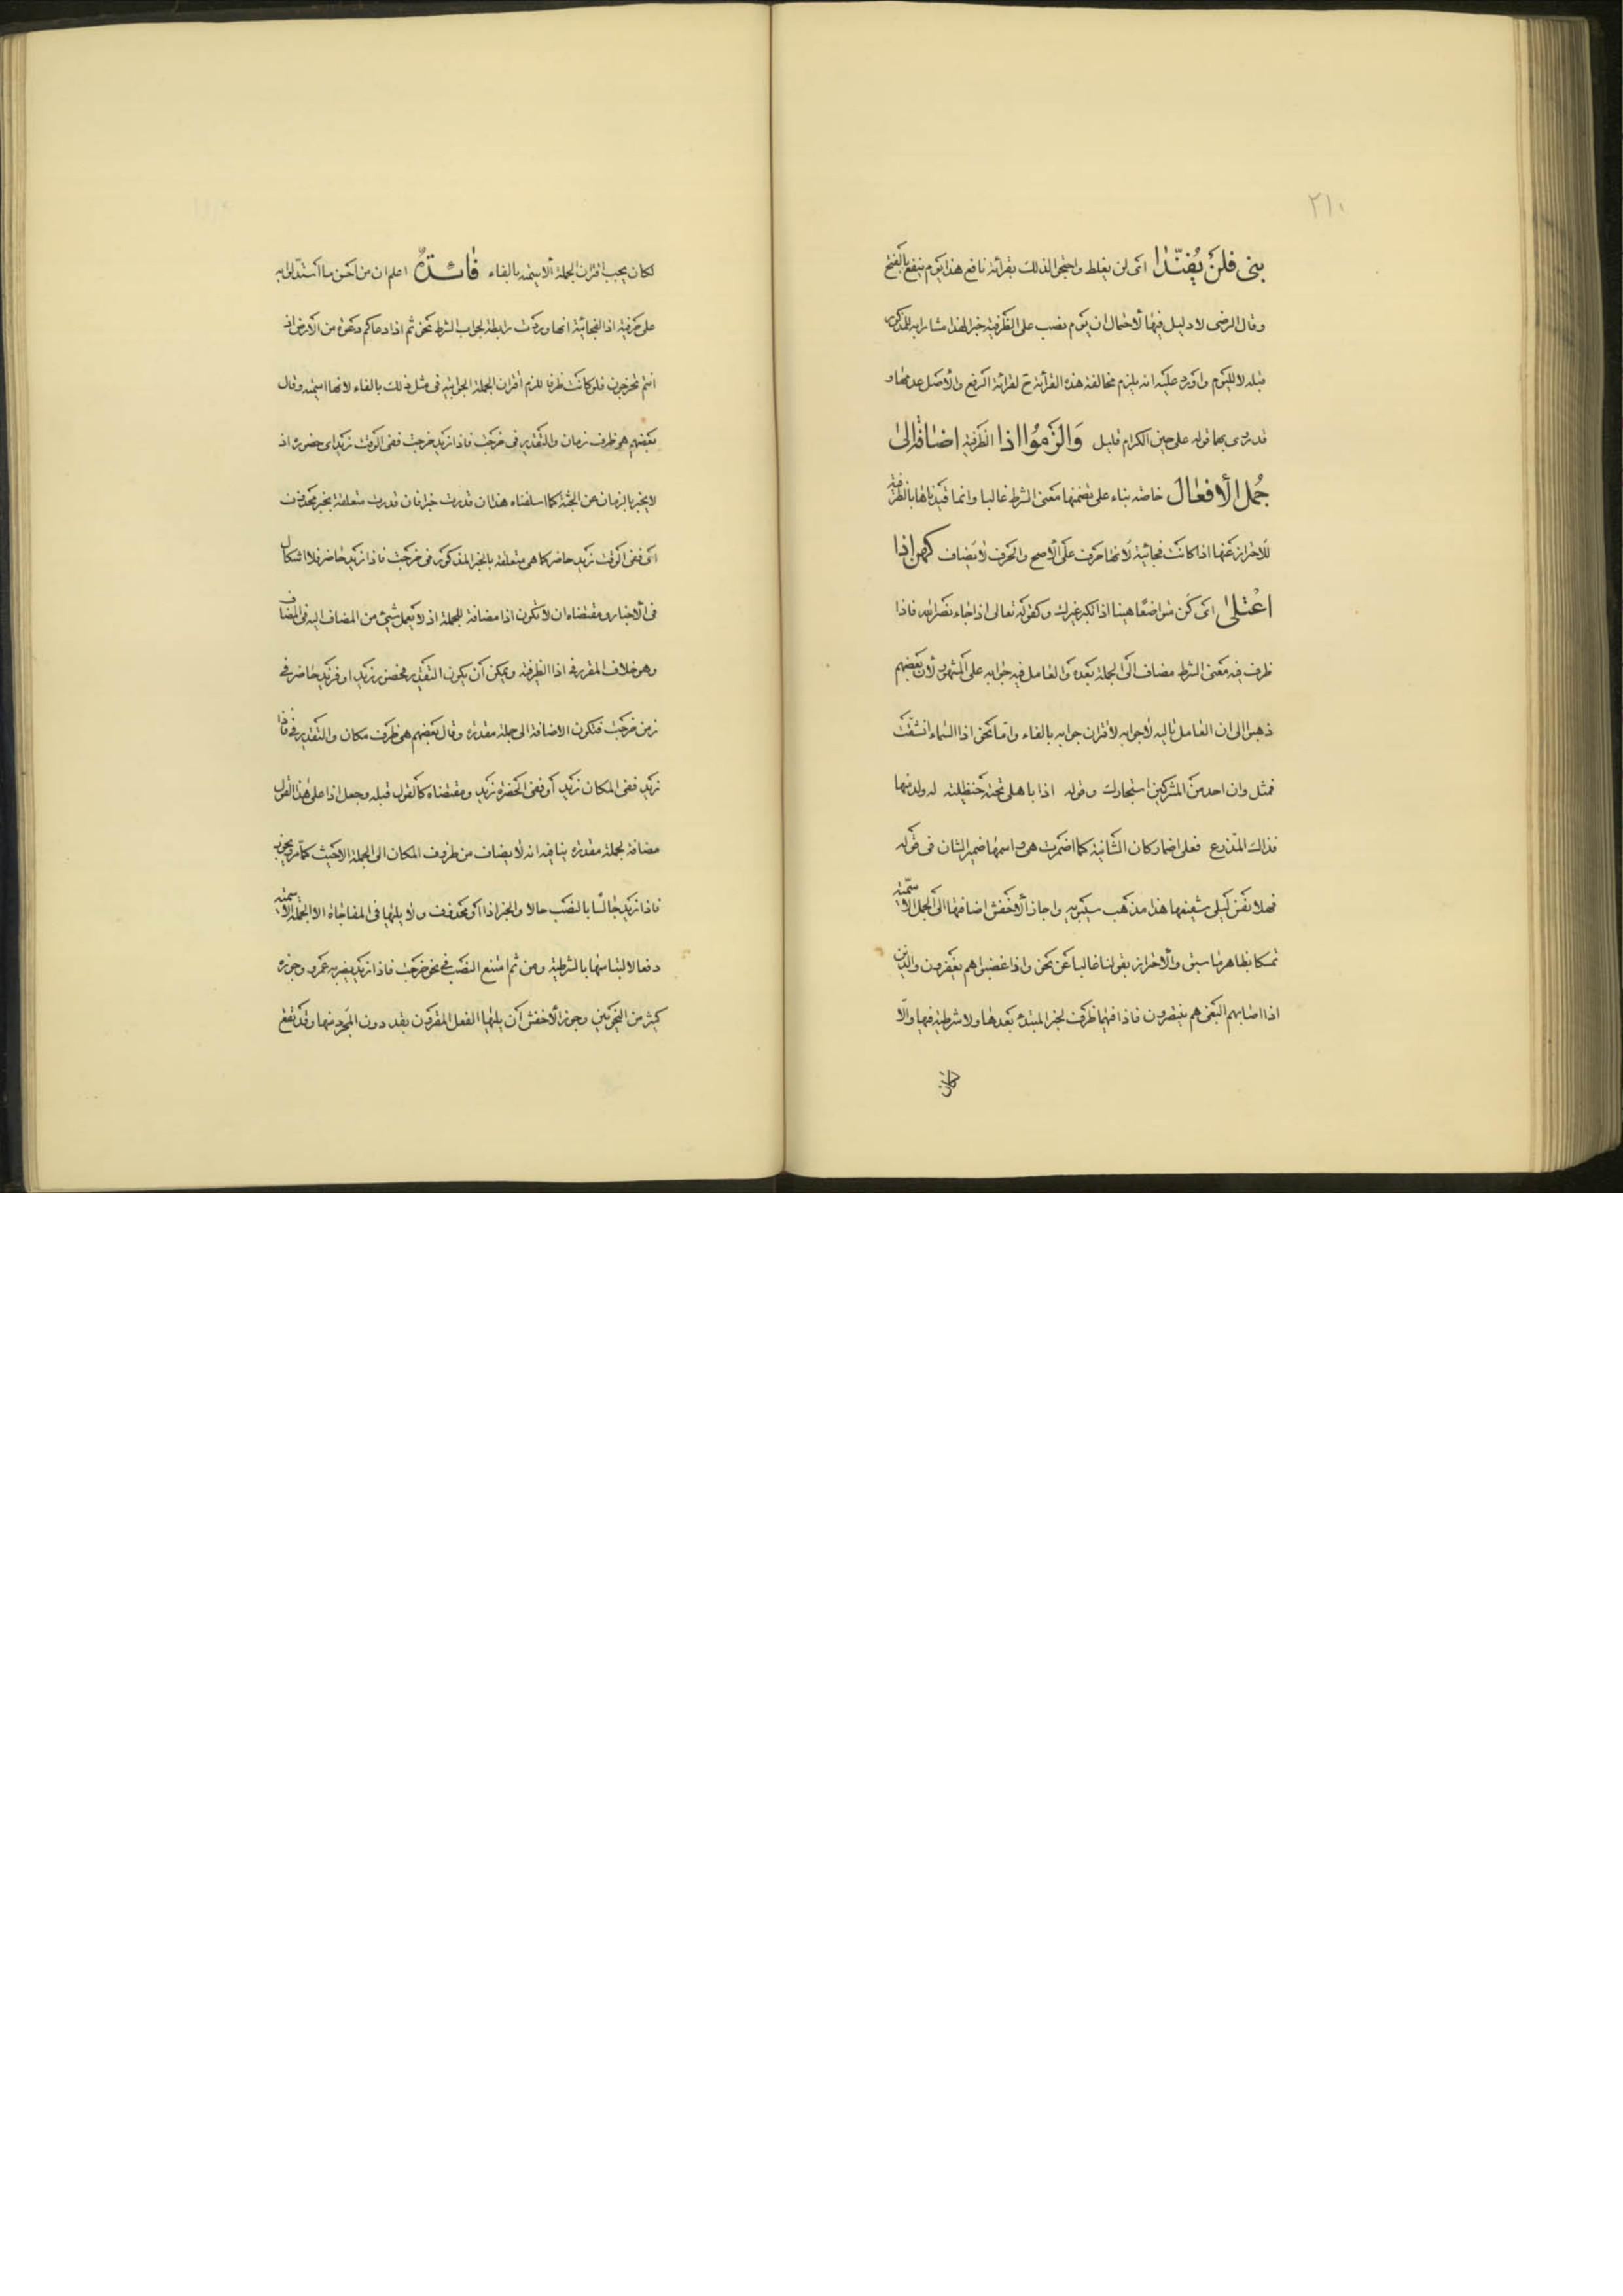 ٢١٠
بنى فلن يفندا اى لن يغلط واحتجوا لذلك بقرائة نافع هذا يوم ينفع بالفتح
وقال الرضى لا دليل فيها لاحتمال ان يوم نصب على الظرفية خبرا لهذا مشارا به للمذكور
قبله لا لليوم واورد عليه انه يلزم مخالفة هذه القرائة ح لقرائة الرفع والاصل عدمها و
قد روى بهما قوله على حين الكرام قليل وَالزَمُوا اذا الظرفية اضافة الى
جُمل الأفعال خاصة بناء على تضمنها معنى الشرط غالبا وانما قيدناها بالظرفية
للاحتراز عنها اذا كانت فجائية لانها حرف على الاصح والحرف لا يضاف كهن اذا
اعْتلى اى كن متواضعًا هينا اذا تكبر غيرك وكقوله تعالى اذا جاء نصر الله فاذا
ظرف فيه معنى الشرط مضاف الى الجملة بعده والعامل فيه جوابه على المشهور لان بعضهم
ذهبوا الى ان العامل تاليه لا جوابه لاقتران جوابه بالفاء واما نحو اذا السماء انشقت
فمثل وان احد من المشركين استجارك وقوله اذا باهلى تحته حنظلية له ولد منها
فذاك المذرع فعلى اضمار كان الشانية كما اضمرت هى واسمها ضمير الشان فى قوله
فهلا نفس ليلى شفيعها هذا مذهب سيبويه واجاز الاخفش اضافتها الى الجمل الاسمية
تمسكا بظاهر ما سبق والاحتراز بقولنا غالبا عن نحو واذا غضبوا هم يغفرون والذين
اذا اصابهم البغى هم ينتصرون فاذا فيهما ظرف لخبر المبتدء بعدها ولا شرطية فيها والا
لكان
لكان يجب اقتران الجملة الاسمية بالفاء فائدة اعلم ان من احسن ما استدل به
على حرفية اذا الفجائية انها وردت رابطة لجواب الشرط نحو ثم اذا دعاكم دعوة من الارض اذ
انتم تخرجون فلو كانت ظرفا للزم اقتران الجملة الجوابية فى مثل ذلك بالفاء لانها اسمية وقال
بعضهم هى ظرف زمان والتقدير فى خرجت فاذا زيد خرجت ففى الوقت زيد اى حضوره اذ
لا يخبر بالزمان عن الجثة كما اسلفناه هذا ان قدرت خبرا فان قدرت متعلقة بخبر محذوف
اى ففى الوقت زيد حاضر كما هى متعلقة بالخبر المذكور فى خرجت فاذا زيد حاضر فلا اشكال
فى الاخبار ومقتضاه ان لا تكون اذا مضافة للجملة اذ لا يعمل شيئ من المضاف اليه فى المضاف
وهو خلاف المقرر فى اذا الظرفية ويمكن أن يكون التقدير محضور زيد او فزيد حاضر فى
زمن خرجت فتكون الاضافة الى جملة مقدرة وقال بعضهم هى ظرف مكان والتقدير فى فاذا
زيد ففى المكان زيد أو ففى الحضرة زيد ومقتضاه كالقول قبله وجعل اذا على هذا القول
مضافة لجملة مقدرة ينافيه انه لا يضاف من ظروف المكان الى الجملة الا حيث كما مر ويجوز
فاذا زيد جالسًا بالنصب حالا والخبر اذا أو محذوف ولا يليها فى المفاجاة الا الجملة الاسمية
دفعا لالتباسها بالشرطية ومن ثم امتنع النصب فى نحو خرجت فاذا زيد يضربه عمرو وجوزه
كثير من النحويين وجوز الاخفش أن يليها الفعل المقرون بقد دون المجرد منها وقد تقع